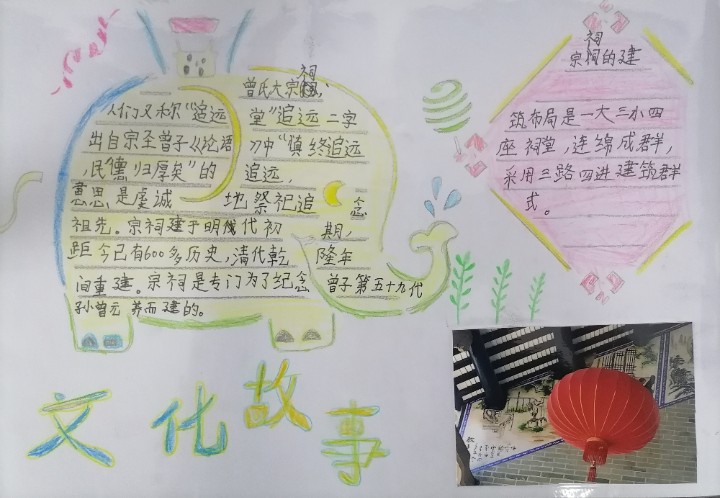 曾氏大宗祠,
人们又称“追远堂”追远二字
出自宗圣曾子《论语》中“慎终追远
,民德归厚矣”的追远,
意思是虔诚地祭祀追念
祖先。宗祠建于明代初期,
距今已有600多历史,清代乾隆年
间重建。宗祠是专门为了纪念曾子第五十九代
孙曾元养而建的。
宗祠的建
筑布局是一大三小四
座祠堂,连绵成群,
采用三路四进建筑群
式。
文化故事